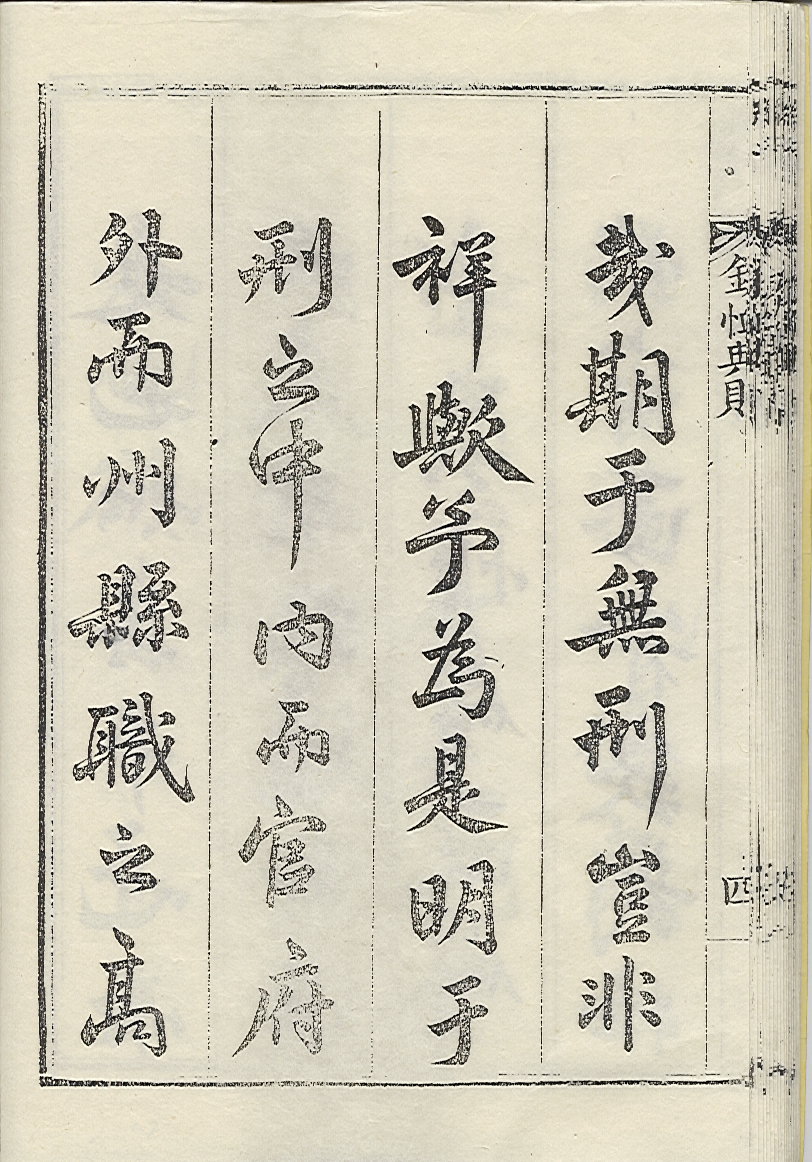 欽恤典則
四
哉期于無刑豈非
祥歟予為是明于
刑之中內而官府
外而州縣職之高